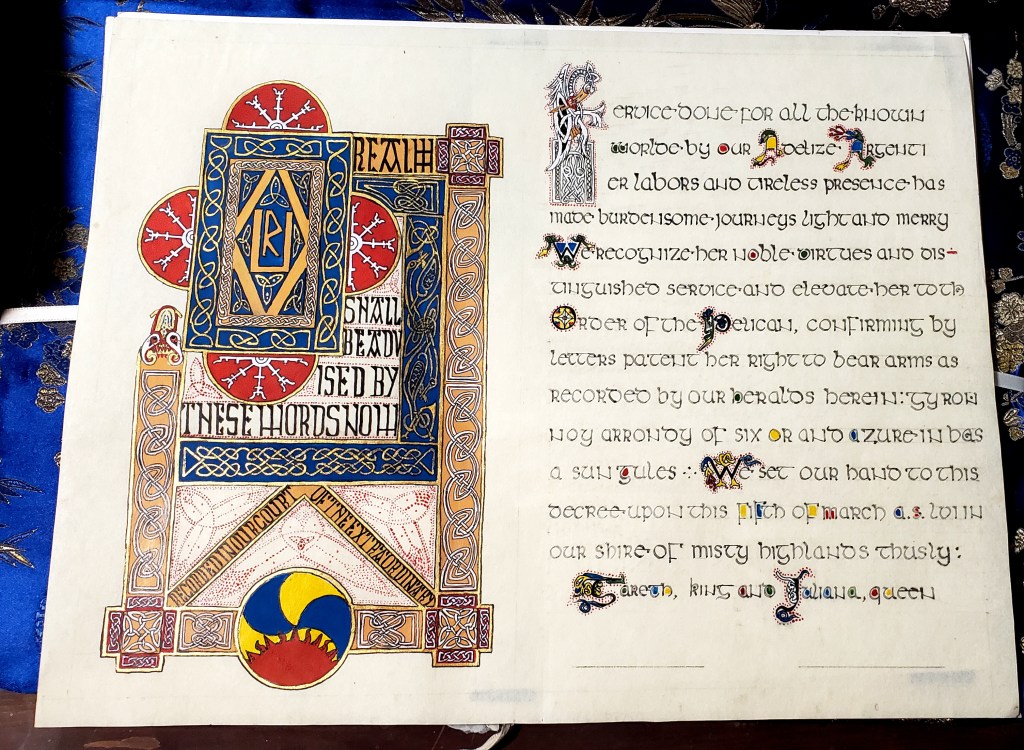 OUR
REALM
SHALL
BE ADV
ISED BY
THESE WORDS NOW
IN OUR COURT
OF THE
Service·done·for all the·known
worlde·by our Adelize·Argenti
er labors and tireless presence·has
made burdensome·journeys light and merry
We·recognize·her noble·virtues and dis-
tinguished service·and elevate·her to th
Order of the Pelican, confirming by
letters patent her right to bear arms as
recorded by our heralds herein: gyron
noy arrondy of six or and azure·in bas
a sun gules ∴ We set our hand to this
decree·upon this fifth of march a.s. lvi in
our shire·of misty highlands thusly:
Gareth, king and Juliana, queen